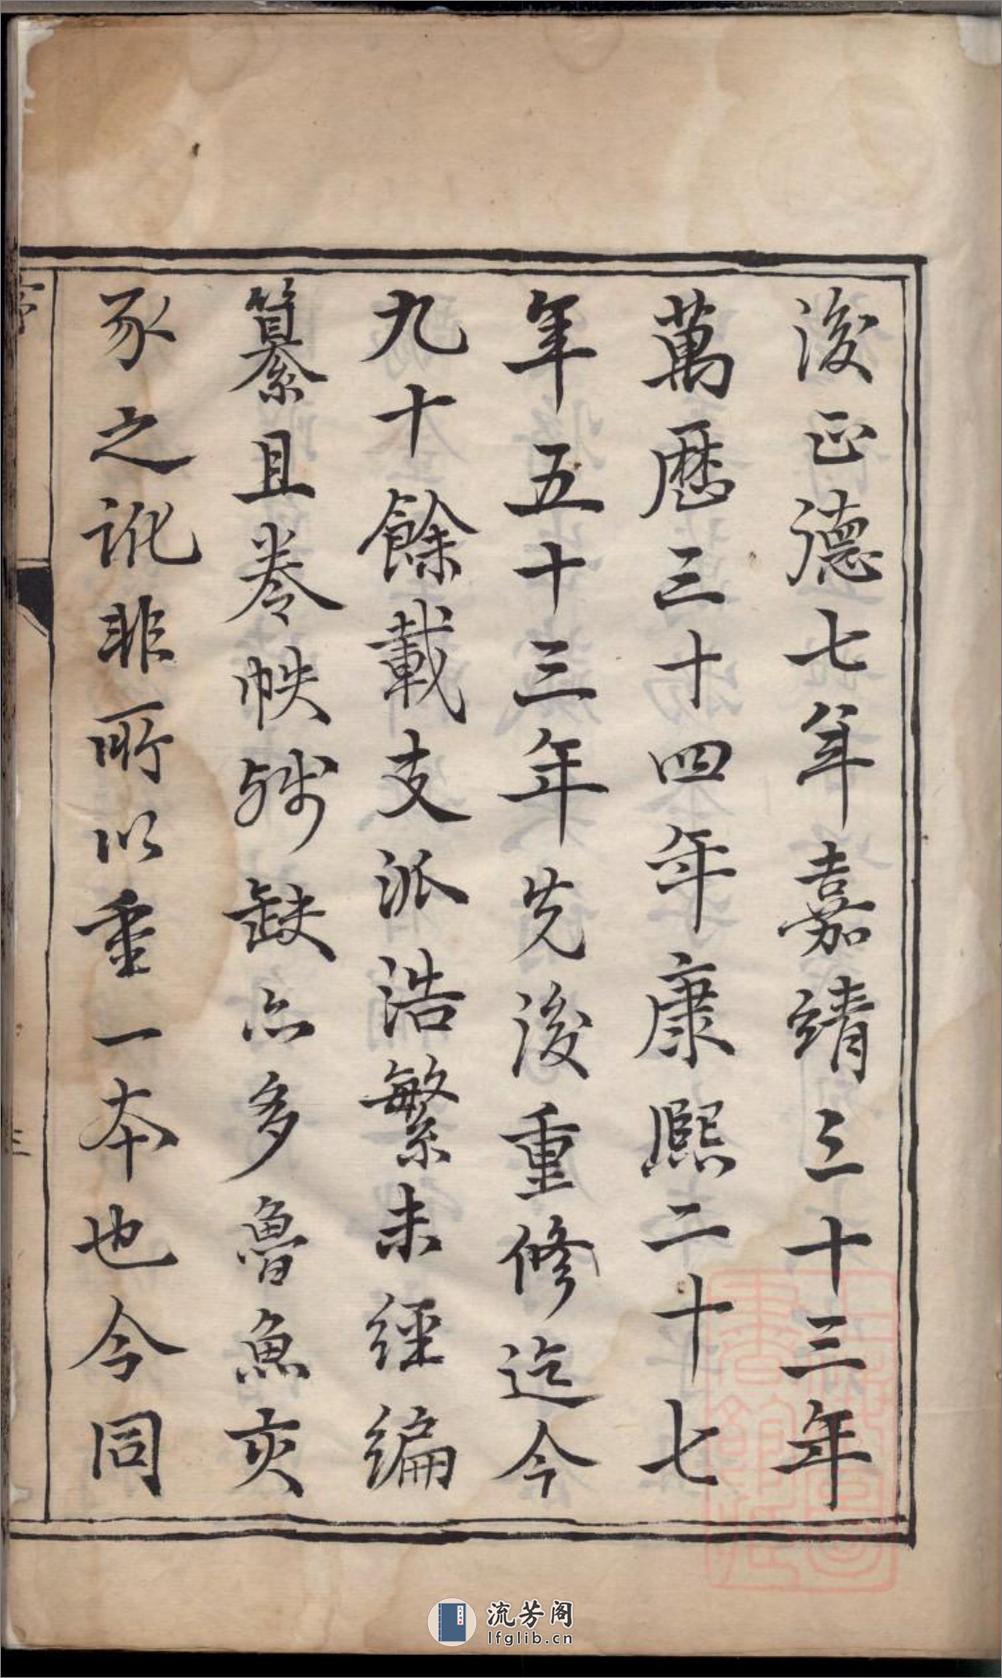 後正德七年嘉靖三十三年
萬歷三十四年康熙二十七
年五十三年先後重修迄今
九十餘載支派浩繁未經編
纂且卷帙殘缺亦多魯魚亥
豕之訛非所以重一本也今同
流芳阁
lfglib.cn